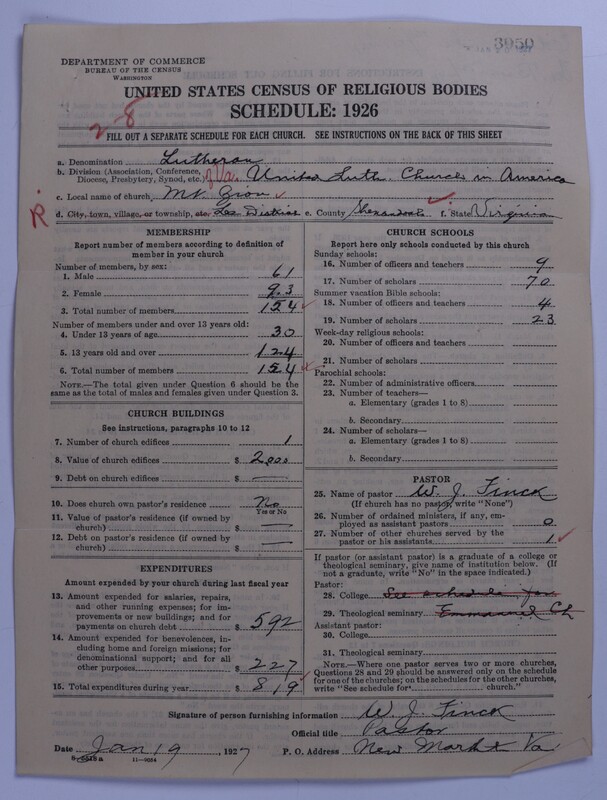 3050
DEPARTMENT OF COMMERCE
BUREAU OF THE CENSUS
WASHINGTON
UNITED STATES CENSUS OF RELIGIOUS BODIES
SCHEDULE: 1926
2-8
FILL OUT A SEPARATE SCHEDULE FOR EACH CHURCH. SEE INSTRUCTIONS ON THE BACK OF THIS SHEET
a. Denomination Lutheran
b. Division (Association, Conference, Diocese, Presbytery, Synod, etc.) of Va. United Luth. Church in America
c. Local name of church Mt. Zion
R.
d. City, town, village, or township, etc. Lee District e. County Shenandoah f. State Virginia
MEMBERSHIP
Report number of members according to definition of
member in your church
Number of members, by sex:
1. Male 61
2. Female 93
3. Total number of members 154
Number of members under and over 13 years old:
4. Under 13 years of age 30
5. 13 years old and over 124
6. Total number of members 154
NOTE.—The total given under Question 6 should be the
same as the total of males and females given under Question 3.
CHURCH BUILDINGS
See instructions, paragraphs 10 to 12
7. Number of church edifices 1
8. Value of church edifices $ 2000
9. Debt on church edifices $ —
10. Does church own pastor's residence No
Yes or No
11. Value of pastor's residence (if owned by
church) $ —
12. Debt on pastor's residence (if owned by
church) $ —
EXPENDITURES
Amount expended by your church during last fiscal year
13. Amount expended for salaries, repairs,
and other running expenses; for im-
provements or new buildings; and for
payments on church debt $ 592
14. Amount expended for benevolences, in-
cluding home and foreign missions; for
denominational support; and for all
other purposes $ 227
15. Total expenditures during year $ 819
CHURCH SCHOOLS
Report here only schools conducted by this church
Sunday schools:
16. Number of officers and teachers 9
17. Number of scholars 70
Summer vacation Bible schools:
18. Number of officers and teachers 4
19. Number of scholars 23
Week-day religious schools:
20. Number of officers and teachers
21. Number of scholars
Parochial schools:
22. Number of administrative officers
23. Number of teachers—
a. Elementary (grades 1 to 8)
b. Secondary
24. Number of scholars—
a. Elementary (grades 1 to 8)
b. Secondary
PASTOR
25. Name of pastor W. J. Finck
(If church has no pastor, write "None")
26. Number of ordained ministers, if any, em-
ployed as assistant pastors 0
27. Number of other churches served by the
pastor or his assistants 1
If pastor (or assistant pastor) is a graduate of a college or
theological seminary, give name of institution below. (If
not a graduate, write "No" in the space indicated.)
Pastor:
28. College See schedule for
29. Theological seminary Emmanuel Ch
Assistant pastor:
30. College
31. Theological seminary
NOTE.—Where one pastor serves two or more churches,
Questions 28 and 29 should be answered only on the schedule
for one of the churches; on the schedules for the other churches,
write "See schedule for church."
Signature of person furnishing information W. J. Finck
Official title Pastor
Date Jan 19, 1927 P. O. Address New Market Va
11—9684